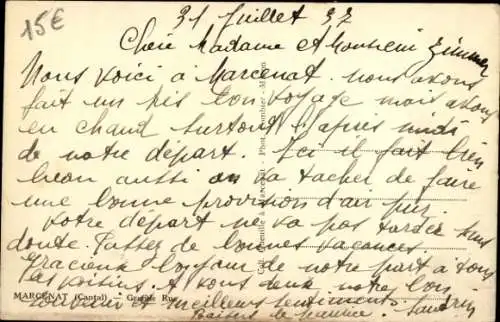 15€
31 Juillet 37
Chère Madame et Monsieur Zimmer
Nous voici à Marcenat. nous avons
fait un très bon voyage mais avons
eu chaud surtout l'après midi
de notre départ. Ici il fait bien
beau aussi on va tacher de faire
une bonne provision d'air pur.
Votre départ ne va pas tarder sans
doute. Passez de bonnes vacances
Gracieux bonjour de notre part à tous
les voisins. A vous deux notre bon
souvenir et meilleurs sentiments.
Baisers de Maurice.
MARCENAT (Cantal) — Grande Rue